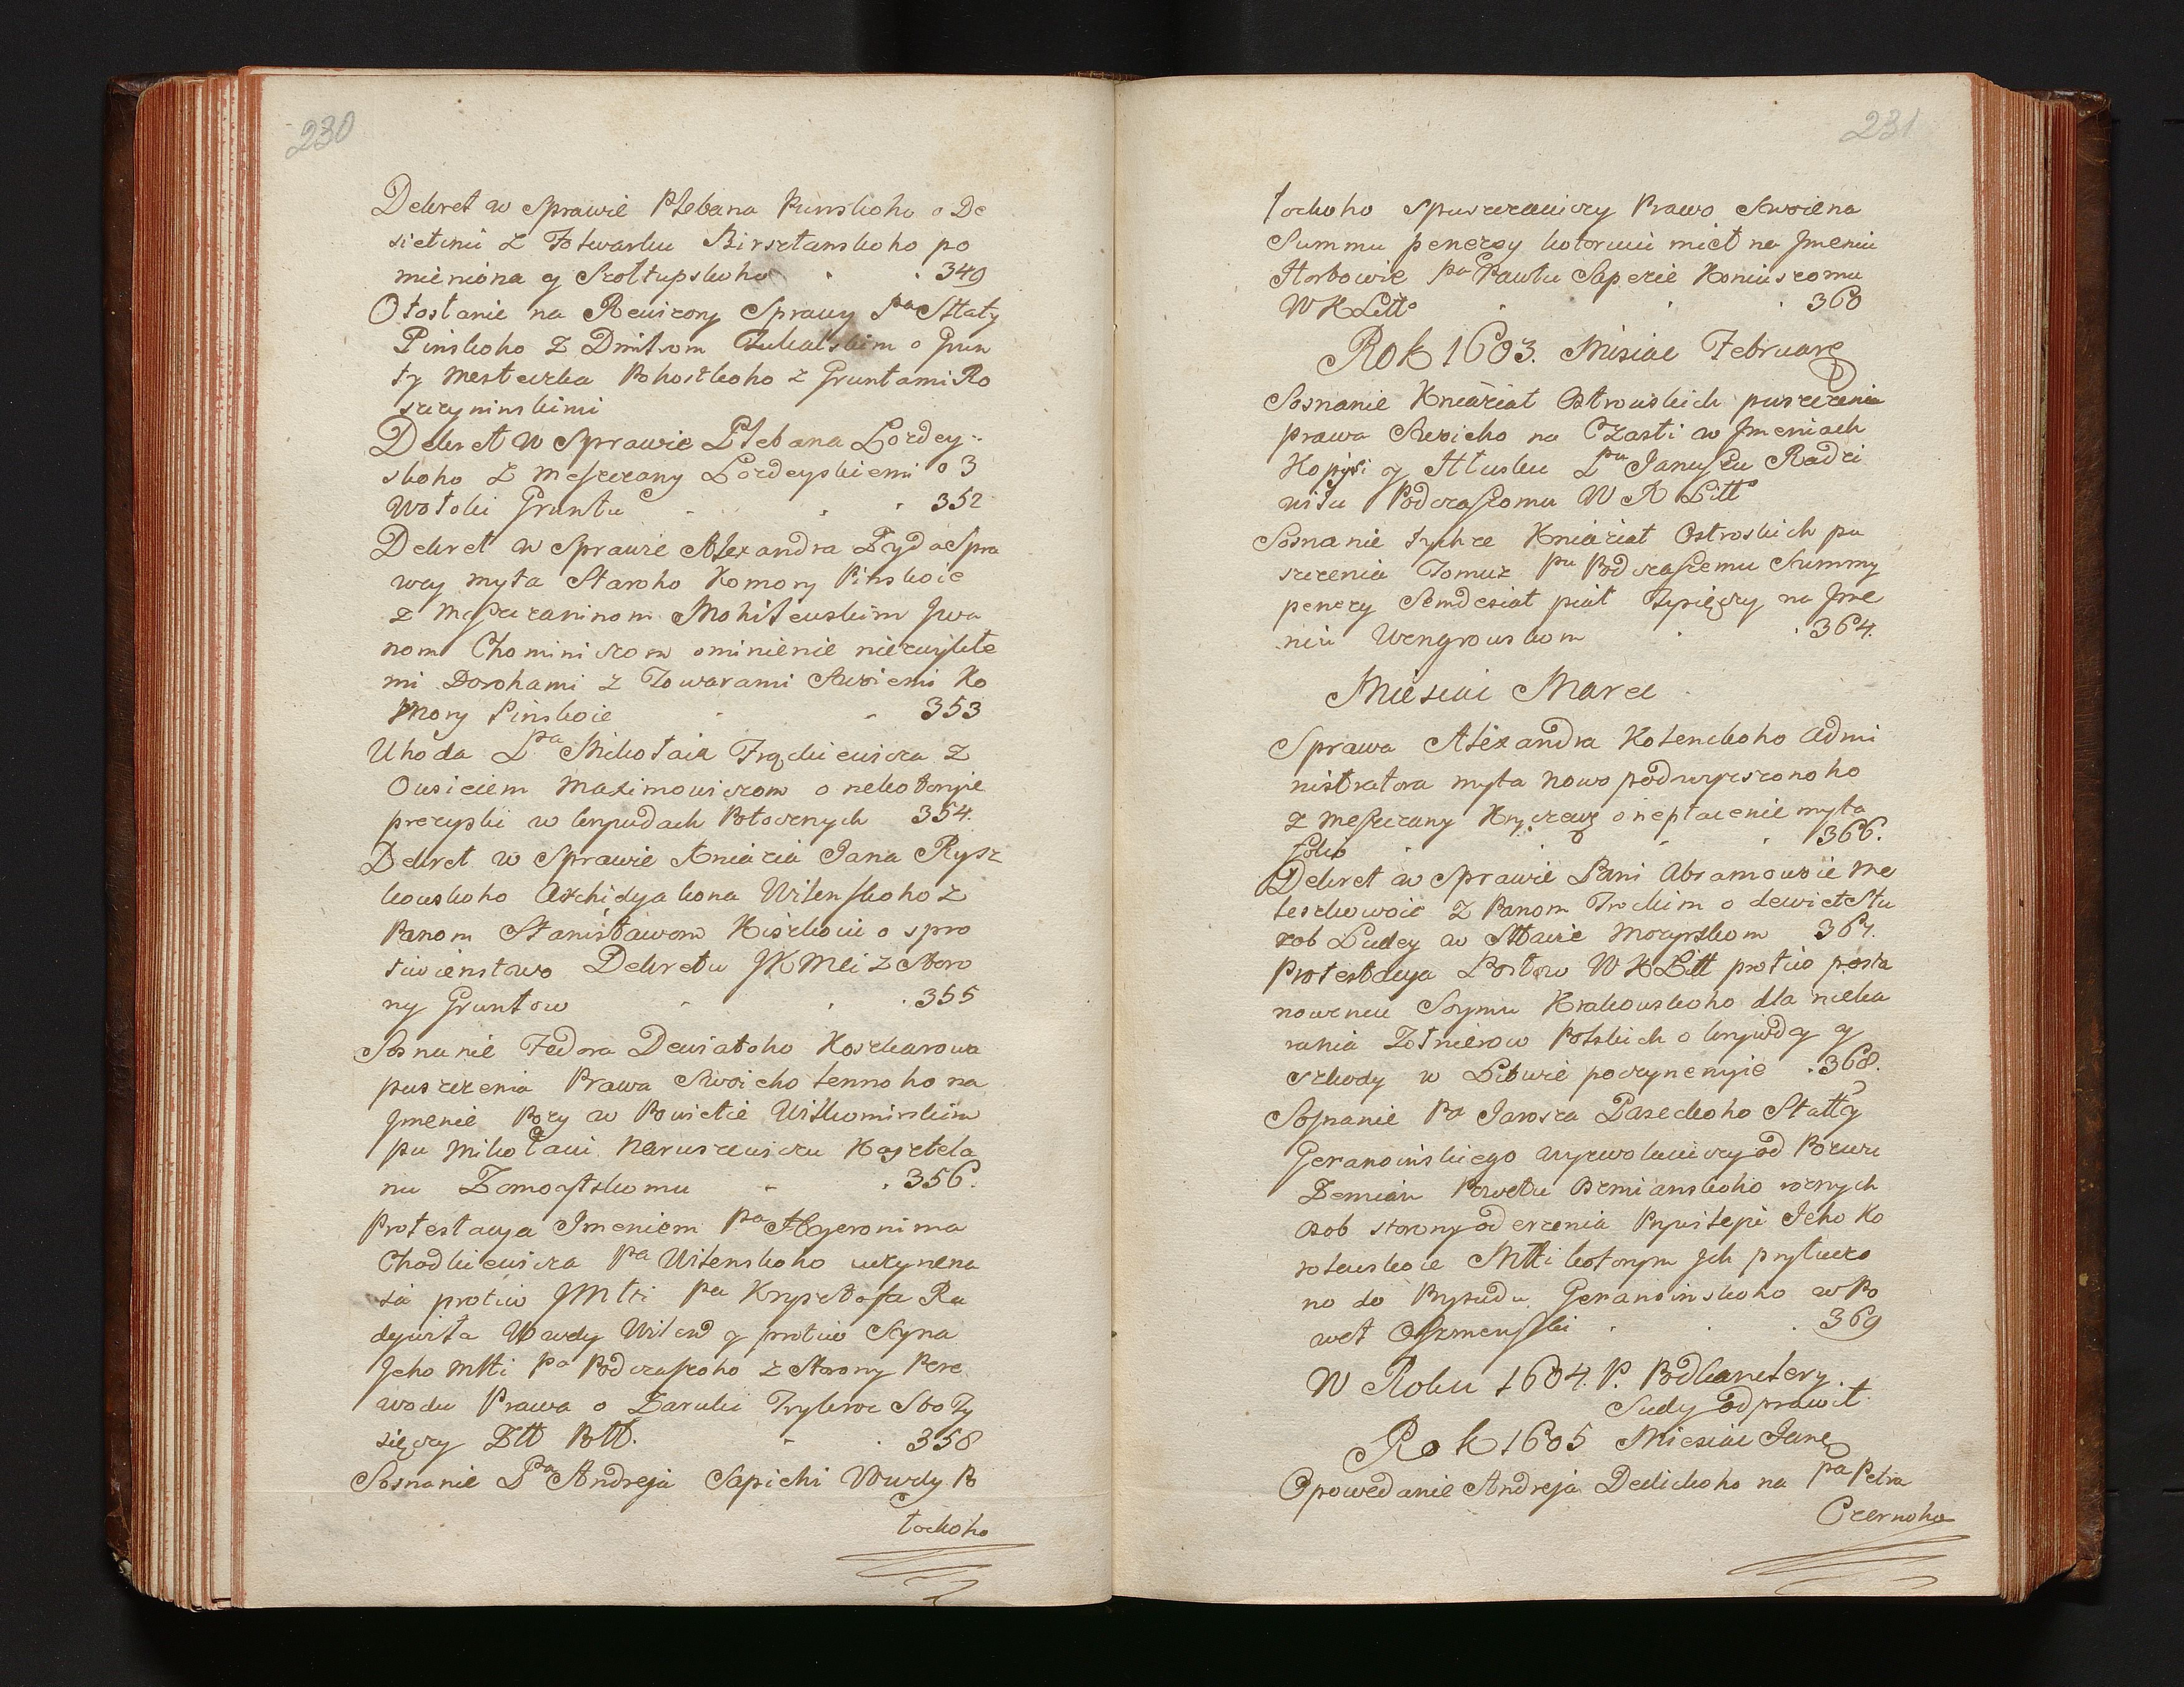 230
Dekret w Sprawie Plebana Punskoho o De
sietinu z Folwarku Birsztanskoho po
mieniona y Szoltupskoho . . 349
Otoslanie na Rewizory Sprawy Pa Sttaty
Pinskoho z Dmitrom o Grun
ty Mesteczka Pohostkoho z Gruntami Ro
szczyninskimi
Dekret w Sprawie Plebana Lozdey
skoho z Meszczany Lozdeyskiemi o 3
Wołoki Gruntu . . . 352
Dekret w Sprawie Alexandra Żyda Spra
wcy myta Staroho Komory Pinskoie
z Meszczaninom Mohilewskim Jwa
nom Chominiczom ominienie niezwykłe
mi Dorohami z Towarami Swoiemi Ko
Mory Pinskoie . . 353
Uhoda Pa Mikołaia Frąckiewicza z
Owsieiem Maximowiczom o nekotoryie
prezyski w krywdach Potocznych 354.
Dekret w Sprawie Kniazia Jana Rysz
kowskoho Archidyakona Wilenskoho z
Panom Stanisławom Kiszkoiu o spro
tiwienstwo Dekretu JKMci z Storo
ny Gruntow . . . 355
Sosnanie Fedora Dewiatoho Koszkarowa
puszczenia Prawa Swoieho lennoho na
Jmenie Pozy w Powietie Wilkomirskim
pu Mikołaiu Naruszewiczu Kasztela
nu Żomoytskomu . . 356.
Protestacya Jmeniem Pa Hyeronima
Chodkiewicza Pa Wilenskoho uczynena
ia protiw JMtti Pa Krysztofa Ra
dywiła Wwdy Wilen y protiw Syna
Jeho Mtti Pa Podczaszoho z Storony Pere
wodu Prawa o Zaruki Trykroć Sto Ty
sięczy Ztt Pott. . . 358
Sosnanie Pa Andreja Sapiehi Wwdy Po
łockoho
231
łockoho spuszczaiuczy Prawo Swoie na
Summu penezey kotoruiu mieł na Jmeniu
Horbowie Pu Pawłu Sapezie Koniuszomu
WXLitto . . . 360
Rok 1603. Miesiac Februarÿ
Sosnanie Kniaziat Ostrouskich puszczenia
prawa Swoieho na Czasti w Jmeniach
Kopysi y Hłusku Pu Januszu Radzi
wiłu Podczaszomu W X Litto
Sosnanie tychze Kniaziat Ostroskich pu
szczenia Tomuz Pu Podczaszemu Summy
penezy Semdesiat piat Tysięczy na Jme
niu Wengrouskom . . 364.
Miesiac Marca
Sprawa Alexandra Kolenckoho Admi
nistratora myta nowo podwyszonoho
z Meszczany Kryczewz o nepłacenie myta
Folio . . . 366.
Dekret w Sprawie Pani Abramowoie Me
leszkowoie z Panom Trockim o dewietStu
zob Ludey w Sttawie Mozyrskom 367.
Protestacya Posłow WXLitt protiw posta
nowenu Seymu Krakouskoho dla neka
rania Żołnierow Polskich o krywdy y
szkody w Litwie poczynenyie . 368.
Sosnanie Pa Jarosza Paseckoho Statty
Geranoinskiego wyzwolaiuczy od Pozwu
Zemian Powetu Oszmianskoho roznych
osob storony od erzenia Prysiehi Jeho Ko
rolewskoie Mtti kotorym Jch prytucze
no do Prysudu Geranoinskoho w Po
wet Oszmenski . . . 369
W Roku 1604. P. Podkanclery
Sudy odprawił.
Rok 1605 Miesiac Janr
Opowedanie Andreja Dedickoho na pa Petra
Czernoho